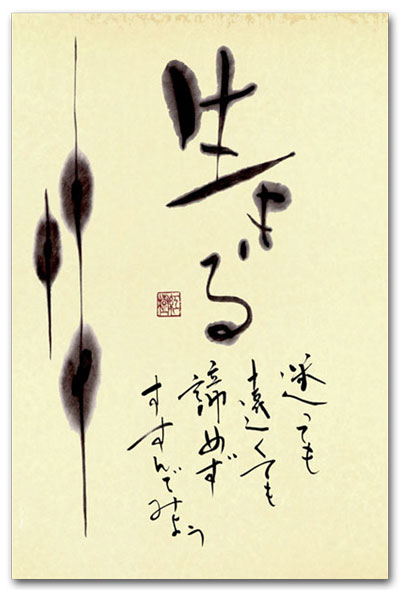 生きる
迷っても
遠くても
諦めず
すすんでみよう